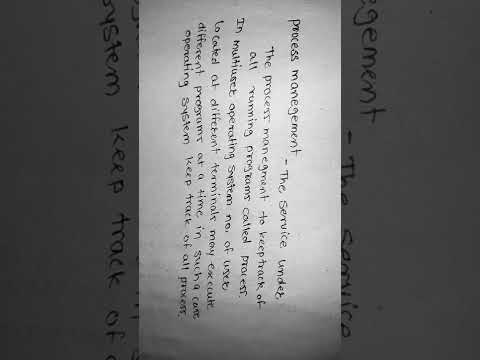 process manegement - The service under
The process manegment to keep track of
all running programs called process.
In multiuser operating system no. of user
located at different terminals may execute
different programs at a time in such a case
operating system keep track of all process.